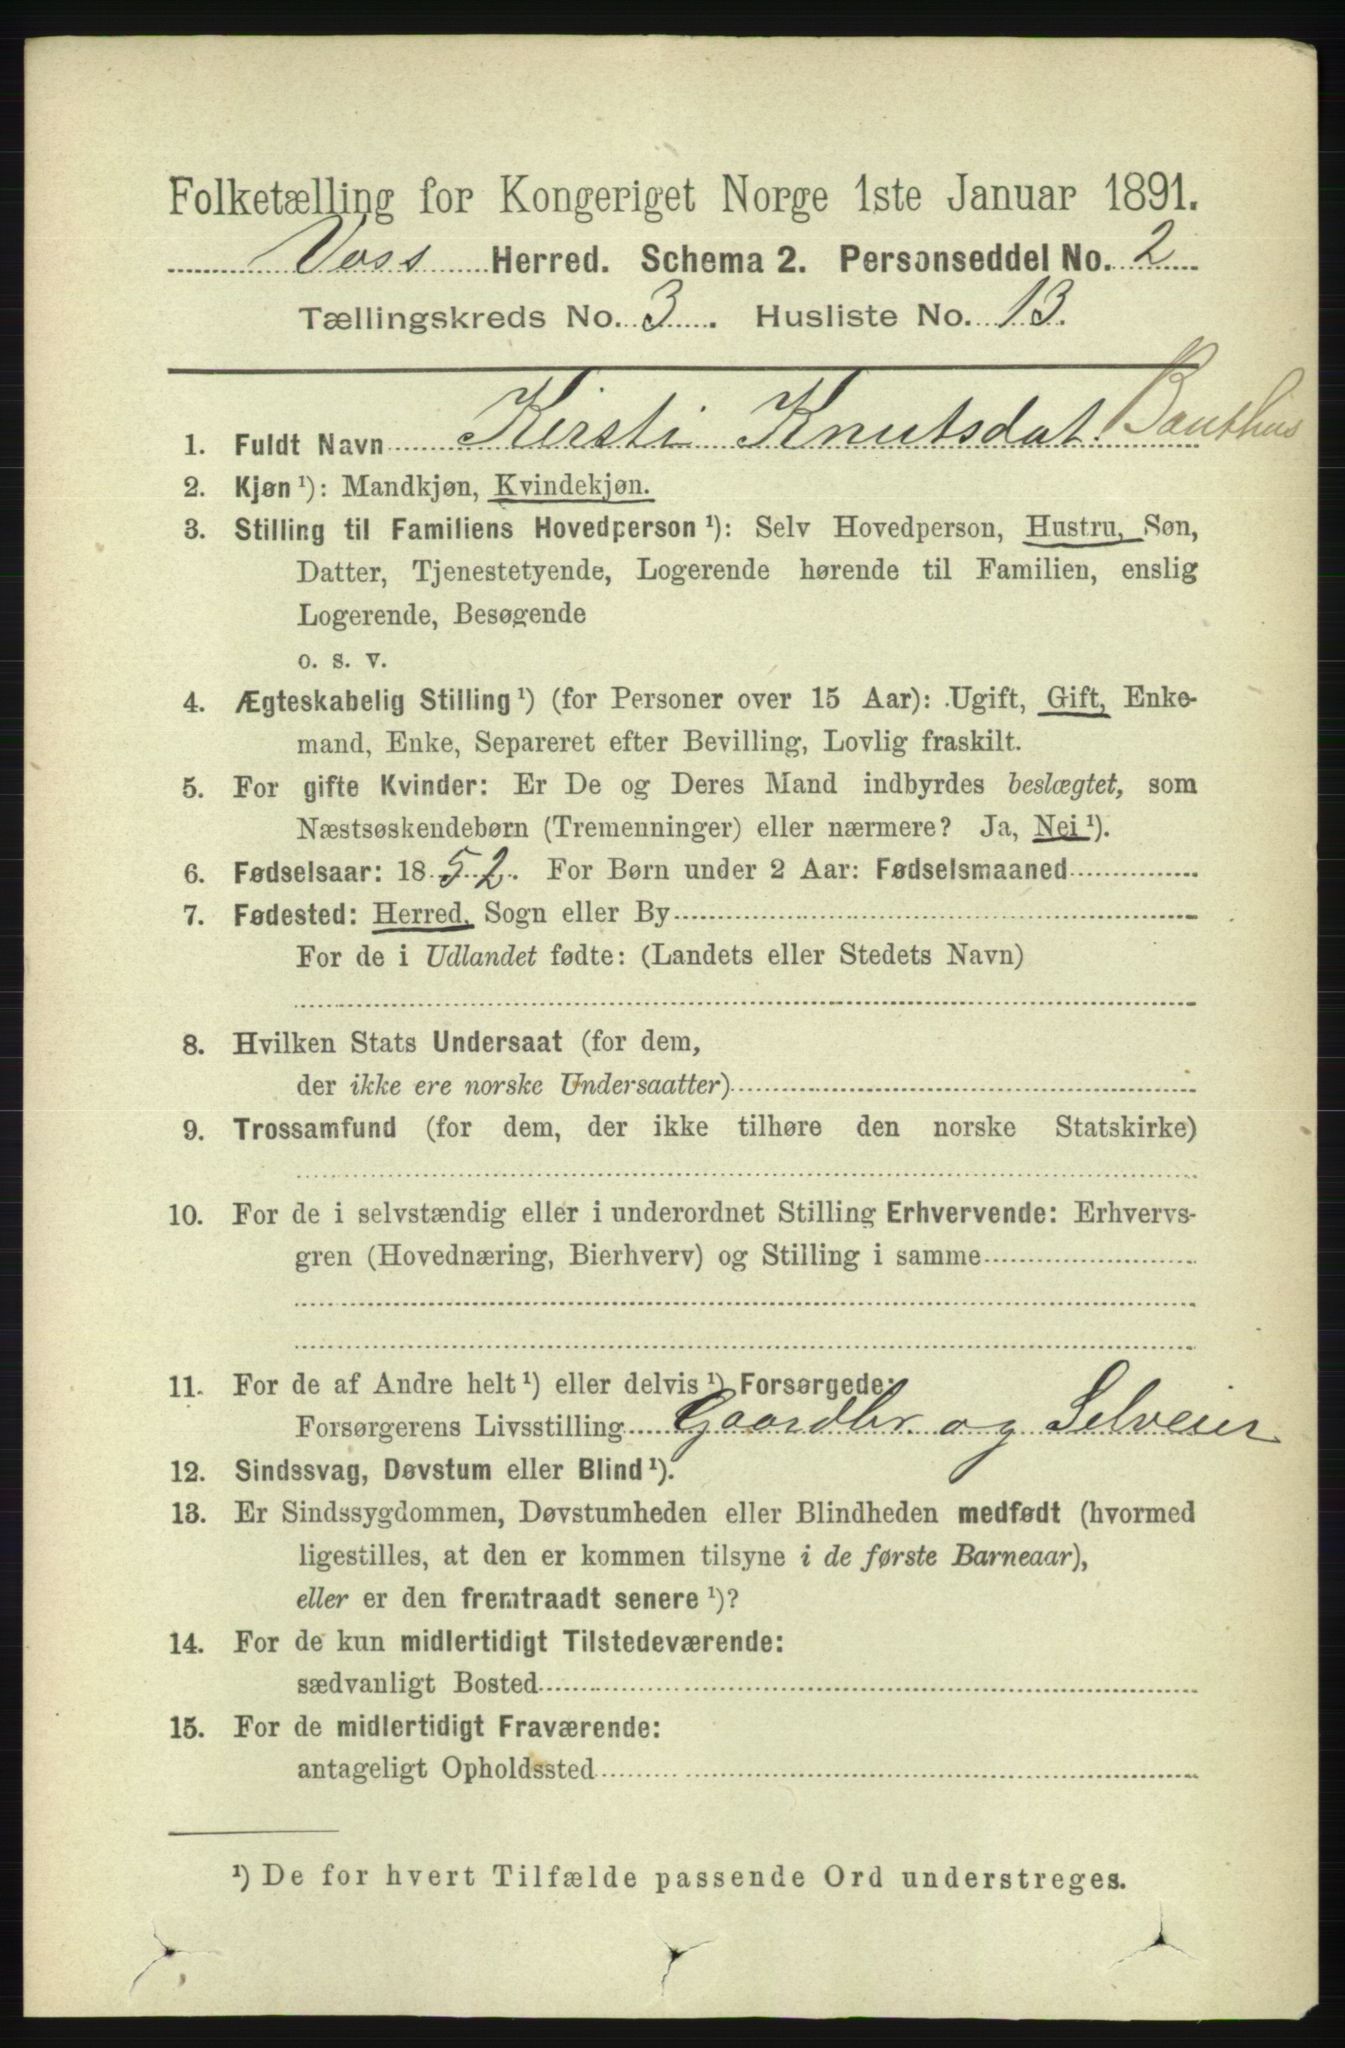 Folketælling for Kongeriget Norge 1ste Januar 1891.
Voss Herred. Schema 2. Personseddel No. 2
Tællingskreds No. 3. Husliste No. 13.
1. Fuldt Navn Kirsti Knutsdat.
2. Kjøn ¹): Mandkjøn, Kvindekjøn.
3. Stilling til Familiens Hovedperson ¹): Selv Hovedperson, Hustru, Søn,
Datter, Tjenestetyende, Logerende hørende til Familien, enslig
Logerende, Besøgende
o. s. v.
4. Ægteskabelig Stilling ¹) (for Personer over 15 Aar): Ugift, Gift, Enke-
mand, Enke, Separeret efter Bevilling, Lovlig fraskilt.
5. For gifte Kvinder: Er De og Deres Mand indbyrdes beslægtet, som
Næstsøskendebørn (Tremenninger) eller nærmere? Ja, Nei ¹).
6. Fødselsaar: 1852. For Børn under 2 Aar: Fødselsmaaned
7. Fødested: Herred, Sogn eller By
For de i Udlandet fødte: (Landets eller Stedets Navn)
8. Hvilken Stats Undersaat (for dem,
der ikke ere norske Undersaatter)
9. Trossamfund (for dem, der ikke tilhøre den norske Statskirke)
10. For de i selvstændig eller i underordnet Stilling Erhvervende: Erhvervs-
gren (Hovednæring, Bierhverv) og Stilling i samme
11. For de af Andre helt ¹) eller delvis ¹) Forsørgede:
Forsørgerens Livsstilling Gaardbr. og Selveier
12. Sindssvag, Døvstum eller Blind ¹).
13. Er Sindssygdommen, Døvstumheden eller Blindheden medfødt (hvormed
ligestilles, at den er kommen tilsyne i de første Barneaar),
eller er den fremtraadt senere ¹)?
14. For de kun midlertidigt Tilstedeværende:
sædvanligt Bosted
15. For de midlertidigt Fraværende:
antageligt Opholdssted
¹) De for hvert Tilfælde passende Ord understreges.